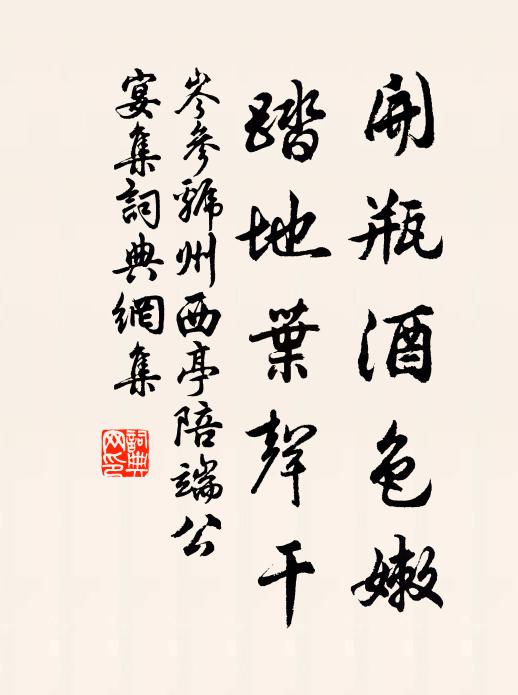 開瓶酒色嫩
踏地葉聲干
岑參虢州西亭陪端公
宴集詞典網集
詞典
网印